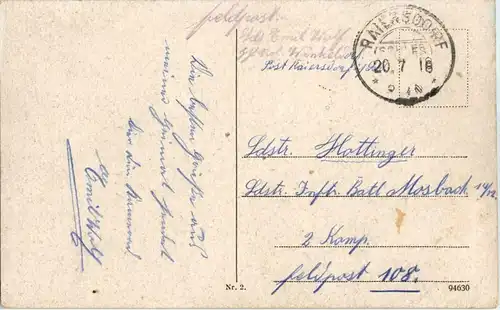 Feldpost.
Lds Emil Wolf
Post Raiersdorf
RAIERSDORF
(SCHLES.)
20. 7 18
Die besten Grüße aus
meiner Heimat sendet
dir dein Kamerad
Emil Wolf
Ldstr. Hottinger
Ldstr. Inftr. Batl Mosbach 14/12
2 Komp.
Feldpost 108.
Nr. 2.
94630